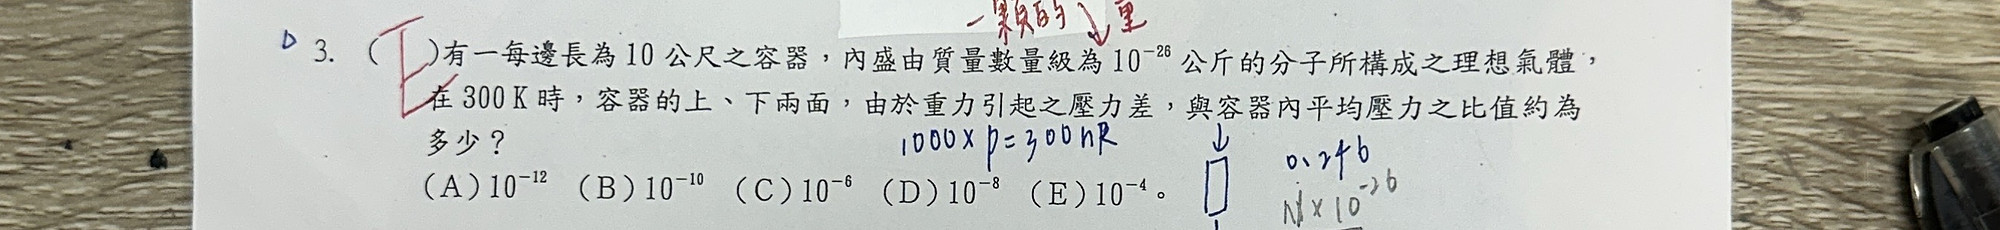 一顆的 ↓ 重
D 3. (E)有一每邊長為 10 公尺之容器，內盛由質量數量級為 10⁻²⁶ 公斤的分子所構成之理想氣體，
在 300 K 時，容器的上、下兩面，由於重力引起之壓力差，與容器內平均壓力之比值約為
多少？
1000 × P = 300 nR
0.246
(A) 10⁻¹² (B) 10⁻¹⁰ (C) 10⁻⁶ (D) 10⁻⁸ (E) 10⁻⁴。
N × 10⁻²⁶